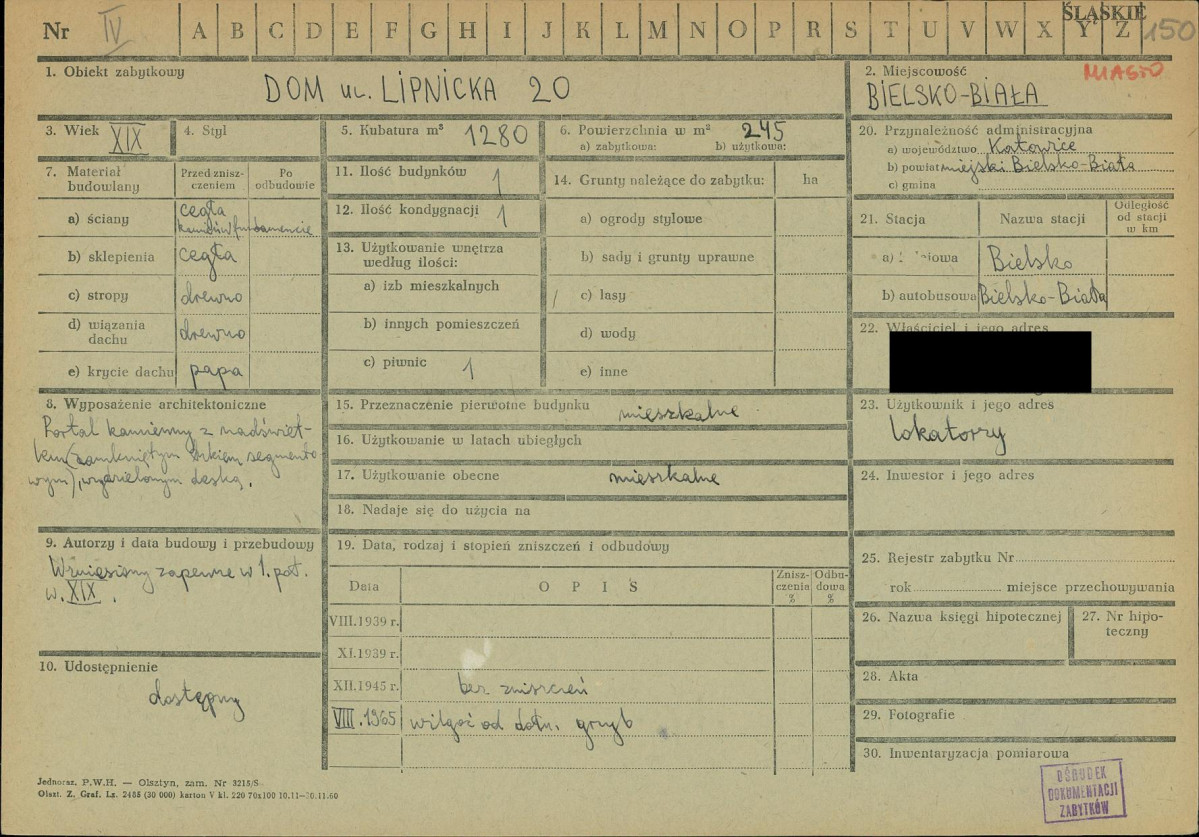 Nr IV A B C D E F G H I J K L M N O P R S T U V W X Y Z ŚLĄSKIE 150
1. Obiekt zabytkowy
DOM ul. LIPNICKA 20
2. Miejscowość MIASTO
BIELSKO-BIAŁA
3. Wiek XIX
4. Styl
5. Kubatura m³ 1280
6. Powierzchnia w m² 245
a) zabytkowa: b) użytkowa:
7. Materiał budowlany
Przed zniszczeniem
Po odbudowie
a) ściany cegła
kamień w fundamencie
b) sklepienia cegła
c) stropy drewno
d) wiązania dachu drewno
e) krycie dachu papa
8. Wyposażenie architektoniczne
Portal kamienny z nadświet-
lem (zamkniętym łukiem segmento-
wym), wydzielonym deską.
9. Autorzy i data budowy i przebudowy
Wzniesiony zapewne w 1. poł.
w. XIX.
10. Udostępnienie
dostępny
11. Ilość budynków 1
12. Ilość kondygnacji 1
13. Użytkowanie wnętrza
według ilości:
a) izb mieszkalnych
b) innych pomieszczeń
c) piwnic 1
14. Grunty należące do zabytku: ha
a) ogrody stylowe
b) sady i grunty uprawne
c) lasy
d) wody
e) inne
15. Przeznaczenie pierwotne budynku mieszkalne
16. Użytkowanie w latach ubiegłych
17. Użytkowanie obecne mieszkalne
18. Nadaje się do użycia na
19. Data, rodzaj i stopień zniszczeń i odbudowy
Data OPIS Zniszczenia % Odbudowa %
VIII.1939 r.
XI.1939 r.
XII.1945 r. bez zniszczeń
VIII.1965 wilgoć od dołu. grzyb
20. Przynależność administracyjna
a) województwo Katowice
b) powiat miejski Bielsko-Biała
c) gmina
21. Stacja Nazwa stacji Odległość od stacji w km
a) Bielsko
b) autobusowa Bielsko-Biała
22. Właściciel i jego adres
23. Użytkownik i jego adres
lokatorzy
24. Inwestor i jego adres
25. Rejestr zabytku Nr
rok miejsce przechowywania
26. Nazwa księgi hipotecznej
27. Nr hipo-
teczny
28. Akta
29. Fotografie
30. Inwentaryzacja pomiarowa
OŚRODEK
DOKUMENTACJI
ZABYTKÓW
Jednoraz. P.W.H. — Olsztyn, zam. Nr 3215/S
Olszt. Z. Graf. Lz. 2485 (30 000) karton V kl. 220 70x100 10.11—30.11.60